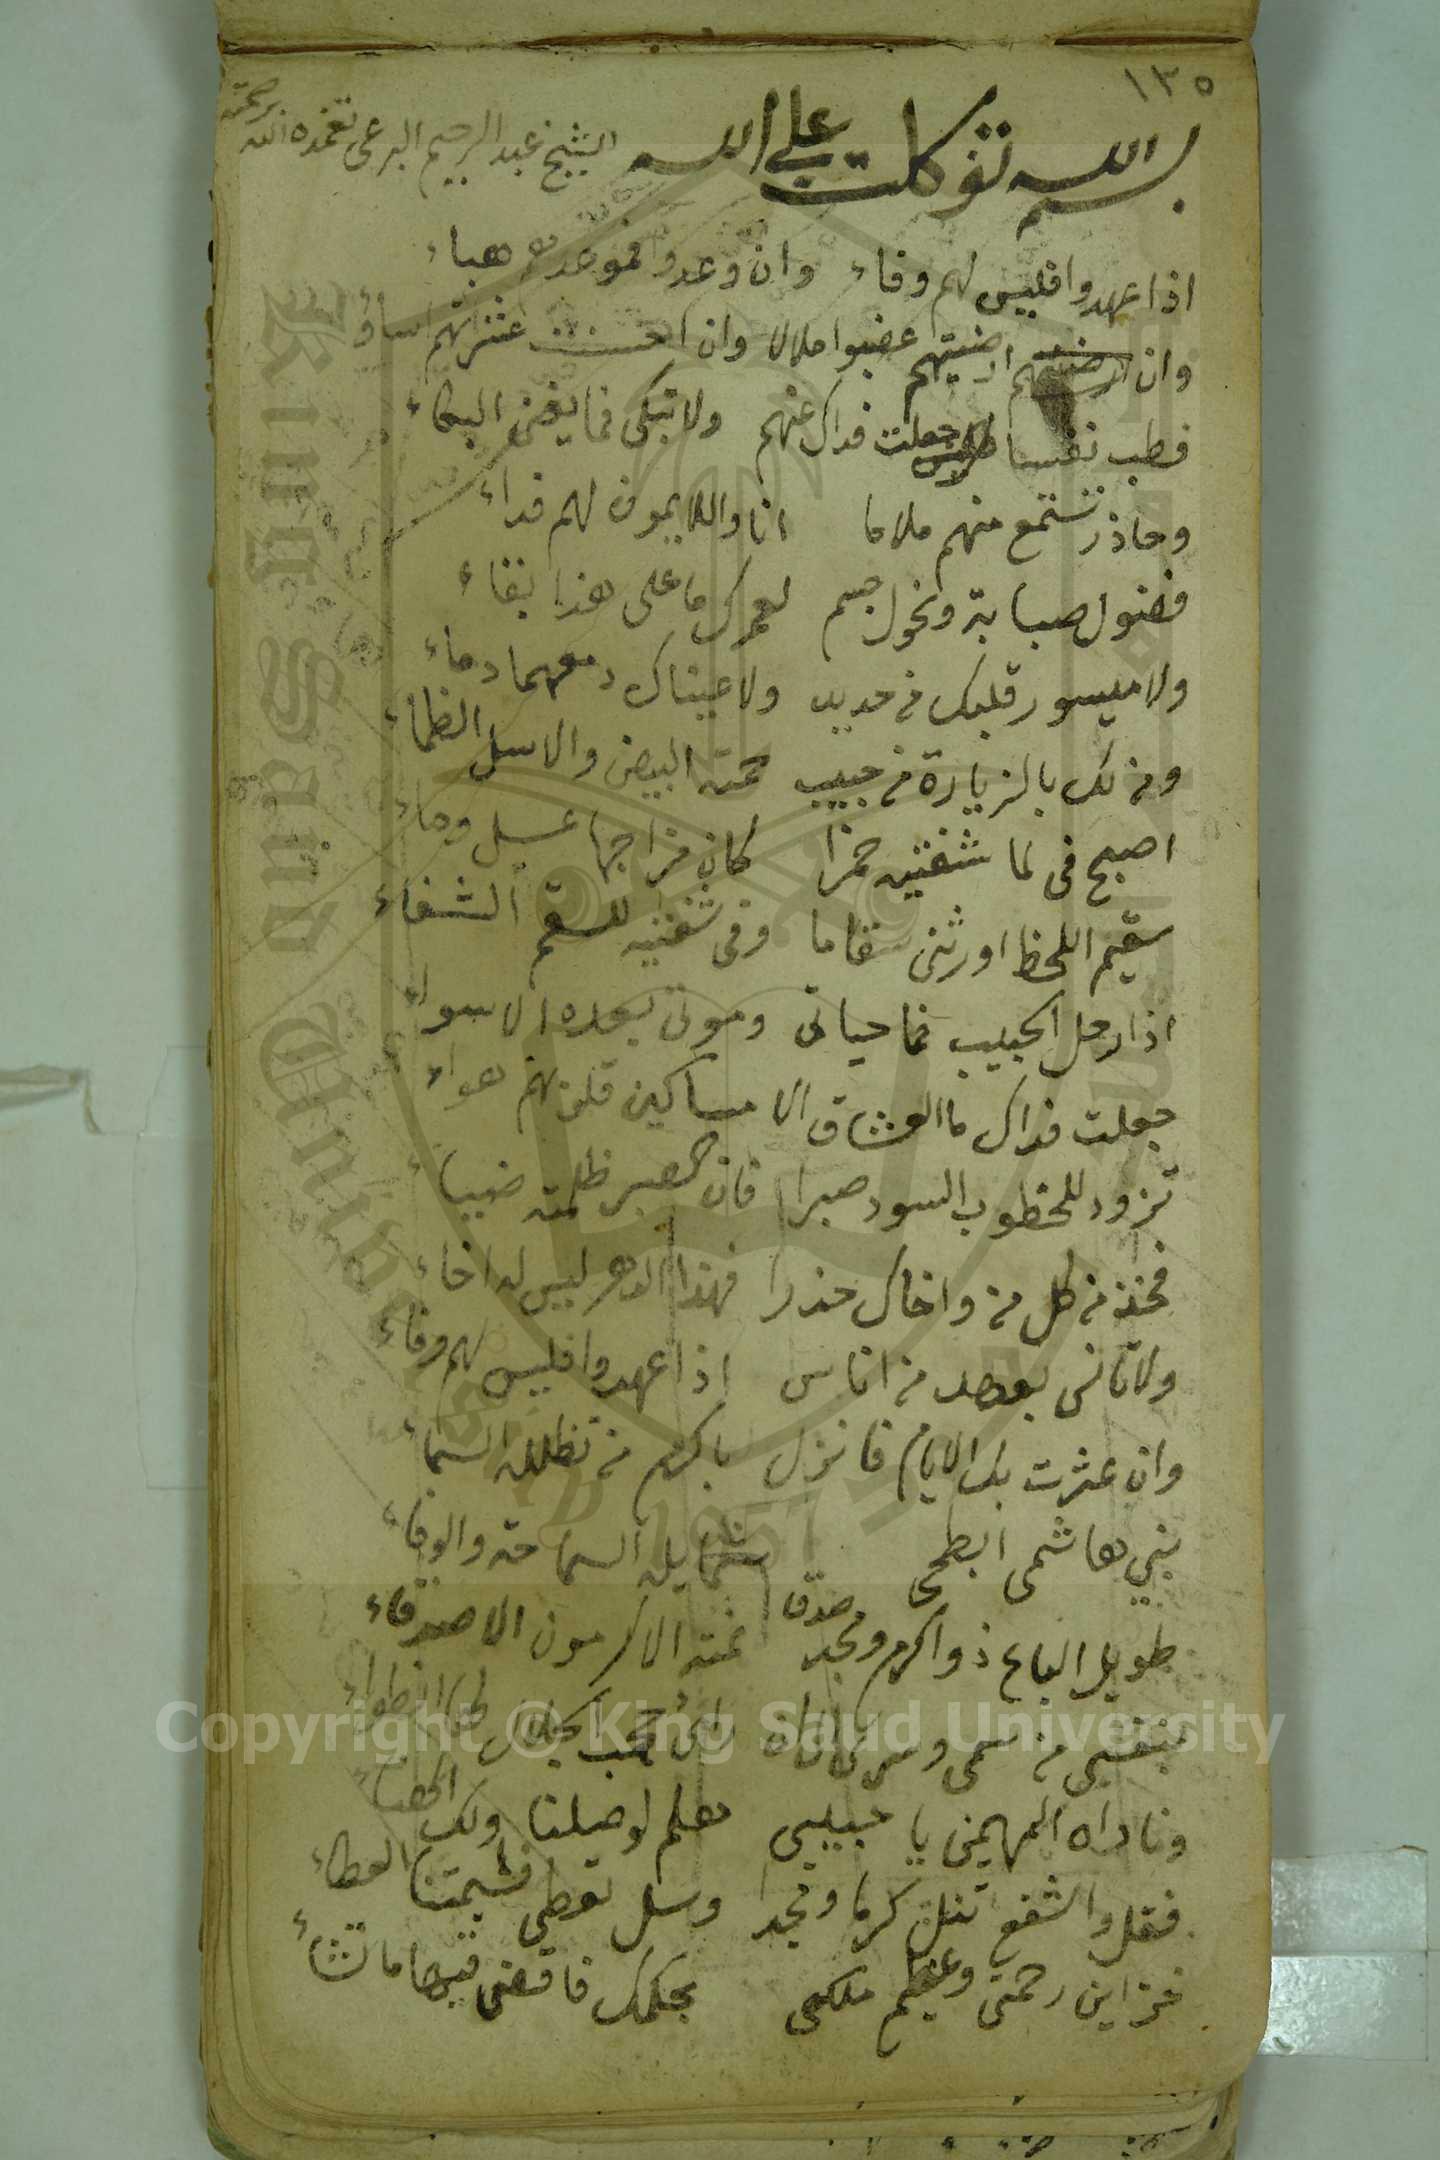 ١٣٥
بسم الله توكلت على الله الشيخ عبد الرحيم البرعي تغمده الله برحمته
اذا عهدوا فليس لهم وفاء وان وعدوا فموعدهم هباء
وان ارضيتهم غضبوا ملالا وان احسنت عشرتهم اساؤ
فطب نفسا جعلت فداك عنهم ولا تبكي فما يغني البكاء
وحاذر تستمع منهم ملاما انا واللايمون لهم فداء
فضول صبابة ونحول جسم لعمرك ما على هذا بقاء
ولا ميسور قلبك من حديد ولا عيناك دمعهما دماء
ومن لك بالزيارة من حبيب حمته البيض والاسل الظماء
اصبح في لما شفتيه خمرا كان مزاجها عسل وماء
سقيم اللحظ اورثني سقاما وفي شفتيه للسقم الشفاء
اذا رحل الحبيب فما حياتي وموتي بعده الا سواء
جعلت فداك ما العشاق الا مساكين قلوبهم هواء
تزود للخطوب السود صبرا فان الصبر ظلمته ضياء
فخذ من كل من واخاك حذرا فهذا الدهر ليس له اخاء
ولا تانس بعهد من اناس اذا عهدوا فليس لهم وفاء
وان عثرت بك الايام فانزل باكرم من تظلله السماء
نبي هاشمي ابطحي شمايله السماحة والوفاء
طويل الباع ذو اكرم ومجد صدق نمته الاكرمون الاصدقاء
بنفسي من سمى وسرى الى حجب الجلال لها انطواء
وناداه المهيمن يا حبيبي هلم لوصلنا ولك الهناء
فقل واشفع تنل كرما ومجدا وسل تعطى فشيمتنا العطاء
خزاين رحمتي وعظيم ملكي بحكمك فاقضي فيها ما تشاء
Copyright © King Saud University
King Saud University
1957